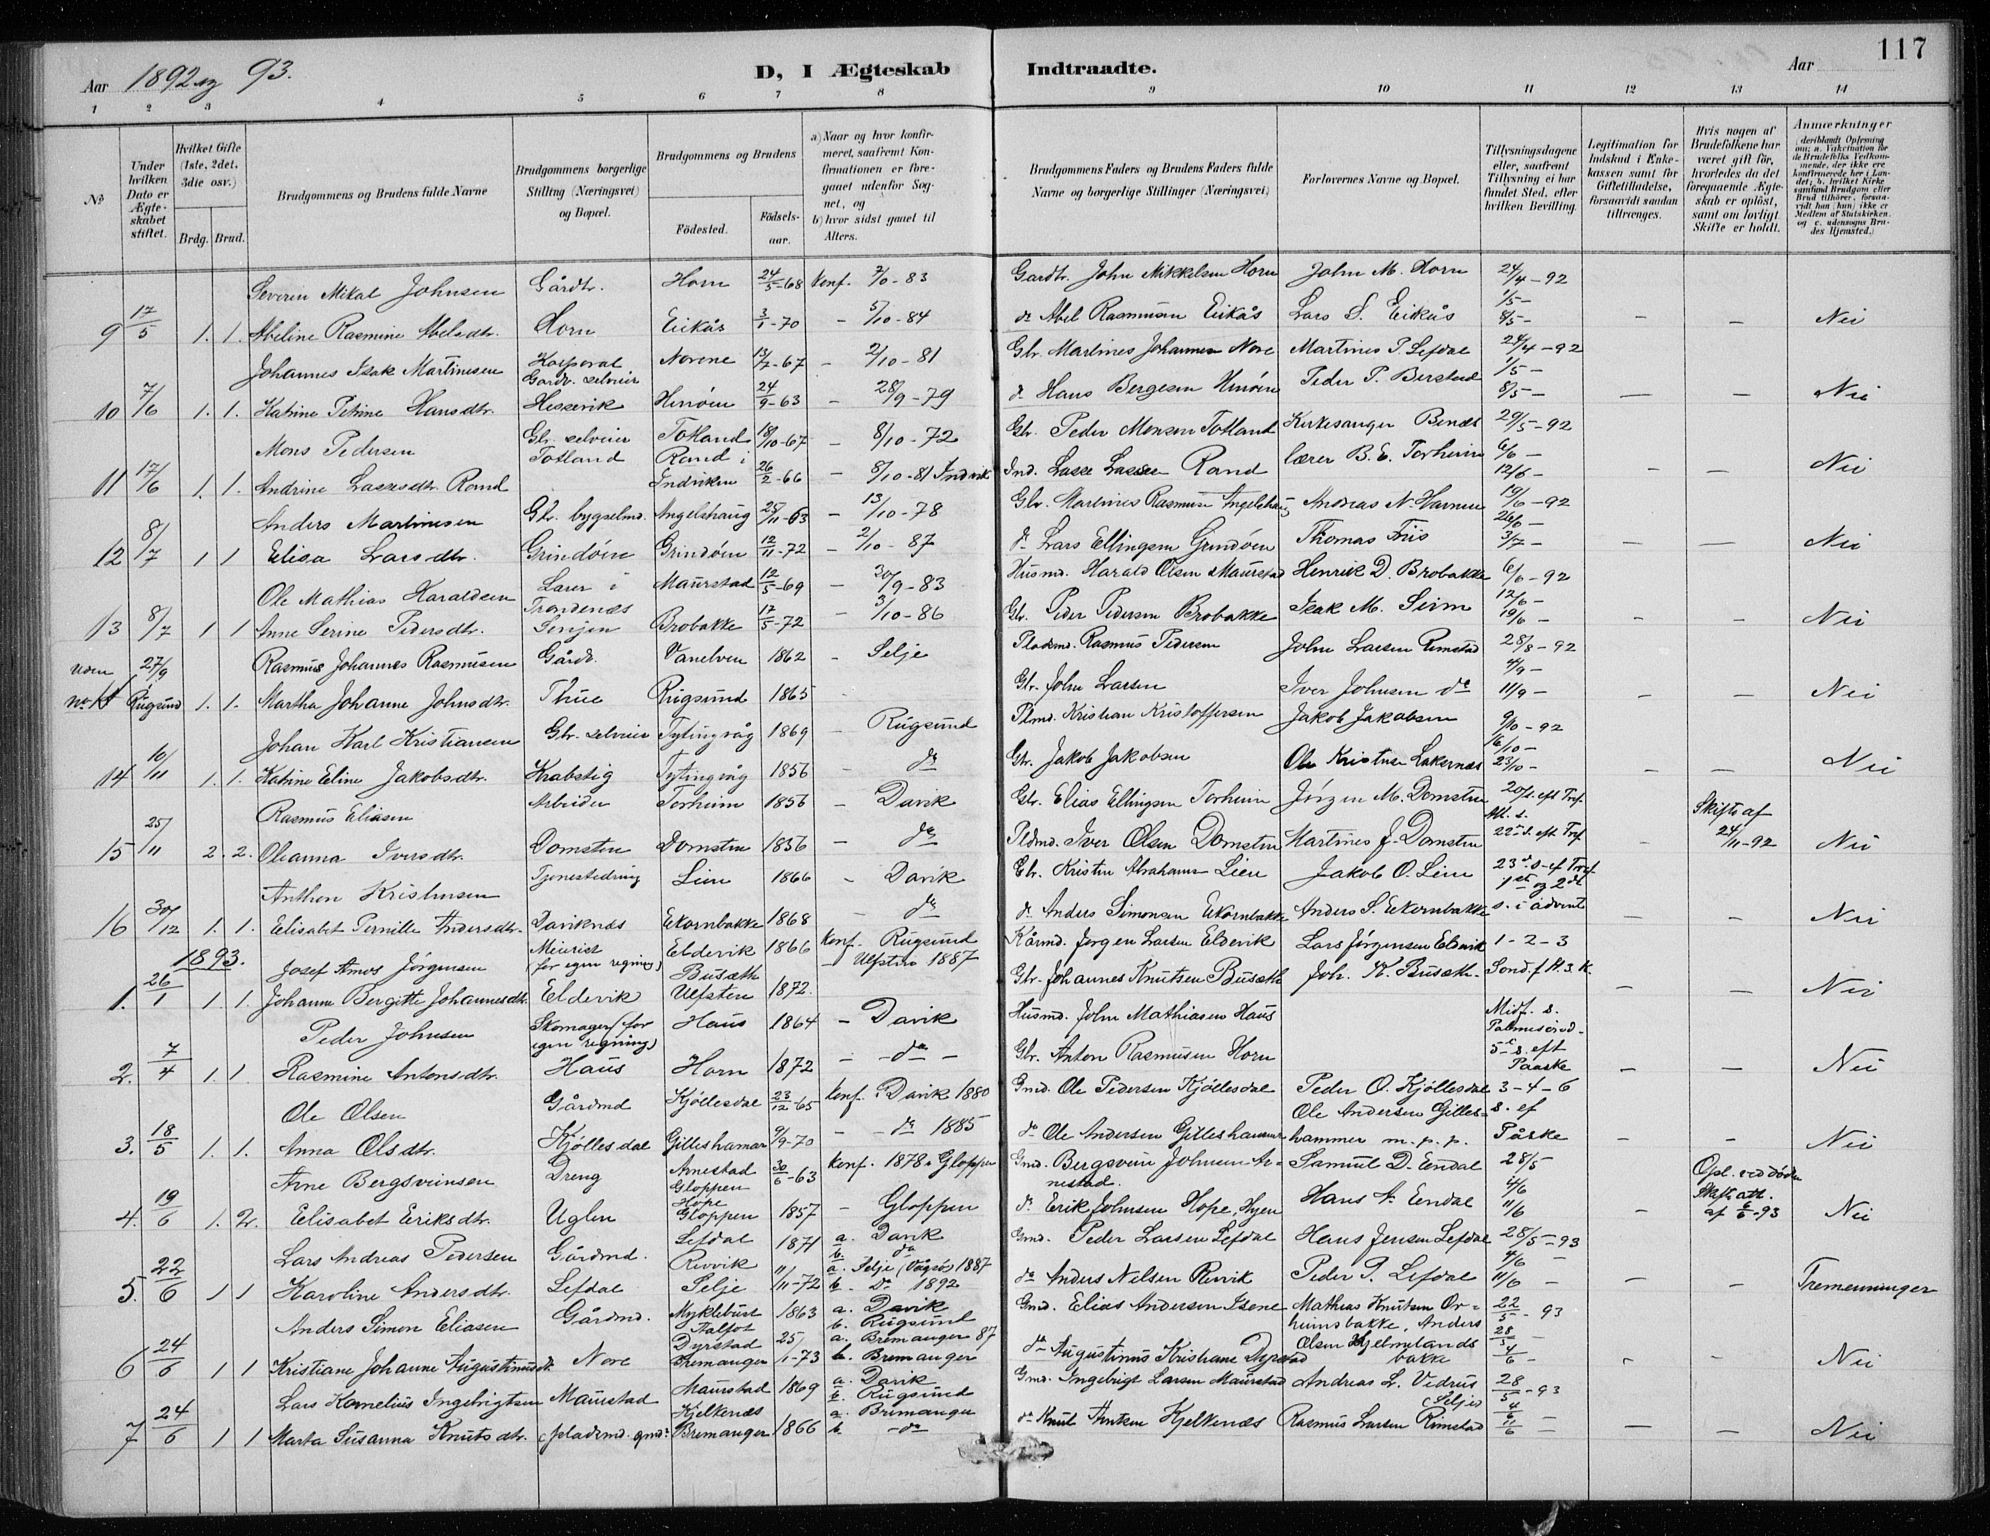 Aar 1892 og 93.
D, I Ægteskab Indtraadte.
Aar 117
1 2 3 4 5 6 7 8 9 10 11 12 13 14
No
Under hvilken Dato er Ægteskabet stiftet.
Hvilket Gifte (1ste, 2det, 3die osv.)
Brdg. Brud.
Brudgommens og Brudens fulde Navne
Brudgommens borgerlige Stilling (Næringsvei) og Bopæl.
Brudgommens og Brudens
Födested. Födselsaar.
a) Naar og hvor konfirmeret, saafremt Konfirmationen er foregaaet udenfor Sognet, og
b) hvor sidst gaaet til Alters.
Brudgommens Faders og Brudens Faders fulde Navne og borgerlige Stillinger (Næringsvei)
Forlovernes Navne og Bopæl.
Tillysningsdagene eller, saafremt Tillysning ei har fundet Sted, efter hvilken Bevilling.
Legitimation for Indskud i Enkekassen samt for Giftetilladelse, forsaavidt saadan tiltrænges.
Hvis nogen af Brudefolkene har været gift för, hvorledes da det foregaaende Ægteskab er oplöst, samt om lovligt Skifte er holdt.
Anmærkninger
Severin Mikal Johnsen Gårdbr. Horn 24/5-68 Konf. 7/10-83 Gardbr. John Mikkelsen Horn John M. Horn 24/4-92
9 17/5 1. 1. Abeline Rasmine Abelsdtr. Horn Eikås 3/1-70 - 5/10-84 do Abel Rasmusen Eikås Lars S. Eikås 1/5 - 8/5 - - - Nei
Johannes Isak Martinusen Korporal Gardb. selveier Norene 13/7-67 - 2/10-81 Gbr. Martines Johannesen Nore Martines P. Lefdal 24/4-92
10 7/6 1. 1. Katrine Petrine Hansdtr. Hessevik Hennöen 24/9-63 - 28/9-79 do Hans Bergesen Hennöen Peder P. Berstad 1/5 - 8/5 - - - Nei
Mons Pedersen Gbr. selveier Totland 18/10-67 - 8/10-72 Gbr. Peder Monsen Totland Kirkesanger Benæs 29/5-92
11 17/6 1. 1. Andrine Lassesdtr. Rand Totland Rand i Indviken 26/2-66 - 8/10-81 Indvik Ind. Lasse Lassesen Rand lærer B. E. Torheim 6/6 - 12/6 - - - Nei
Anders Martinusen Gbr. bygselmd. Angelshaug 25/11-63 - 13/10-78 Gbr. Martines Rasmusen Angelshaug Andreas N. Havnen 19/6-92
12 8/7 1 1 Elisa Larsdtr. Grindöen Grindöen 12/11-72 - 2/10-87 do Lars Ellingsen Grindöen Thomas Friis 26/6 - 3/7 - - - Nei
Ole Mathias Haraldsen Lærer i Maurstad 12/5-69 - 30/9-83 Husmd. Harald Olsen Maurstad Henrik D. Brobakke 6/6-92
13 8/7 1 1 Anne Serine Pedersdtr. Trondenæs Senjen Brobakke 17/5-72 - 3/10-86 Gbr. Peder Pedersen Brobakke Isak M. Seim 12/6 - 19/6 - - - Nei
uden 27/9 Rasmus Johannes Rasmusen Gårdb. Vanelven 1862 - Selje Pladsmd. Rasmus Pedersen John Larsen Rimstad 28/8-92
Rugsund 1. 1. Martha Johanne Johnsdtr. Thue Rugsund 1865 - Gbr. John Larsen Iver Johnsen do 4/9 - 11/9 - - - Nei
Johan Karl Kristiansen Gbr. selveier Tytingvåg 1869 - Rugsund Plmd. Kristian Kristoffersen Jakob Jakobsen 9/10-92
14 10/11 1. 1. Katrine Eline Jakobsdtr. Krabstig Tytingvåg 1856 - do Gbr. Jakob Jakobsen Ole Kristense Lakernæs 16/10 - 23/10 - - - Nei
Rasmus Eliasen Arbeider Torheim 1856 - Davik Gbr. Elias Ellingsen Torheim Jörgen M. Domsten 20/s. eft Tref. Skifte af
15 25/11 2. 2. Oleanna Iversdtr. Domsten Domsten 1836 - do Pldmd. Iver Olsen Domsten Martines J. Domsten 22de s. eft Tref - 24/11-92 Nei
Anthon Kristensen Tjenestedreng Lien 1866 - Davik Gbr. Kristen Abrahamsen Lien Jakob O. Lien 23de s. ef Tref
16 30/12 1. 1. Elisabet Pernille Andersdtr. Daviknæs Ekornbakke 1868 - do do Anders Simonsen Ekornbakke Anders S. Ekornbakke 1ste og 2de s. i advent - - Nei
1893.
Josef Amos Jörgensen Meierist (for egen regning) Elderik 1866 Konf. Rugsund Kårmd. Jörgen Larsen Elderik Lars Jörgensen Elderik 1-2-3
1. 26/1 1. 1. Johanne Bergitte Johannesdtr. Elderik Busæth Ulfsten 1872. - Ulfsten 1887 Gbr. Johannes Knutsen Busæth Joh. K. Busæth Sond. f H. 3 K. - - Nei
Peder Johnsen Skomager (for egen regning) Haus 1864 - Davik Husmd. John Mathiasen Haus Midf. s. Palmesönd-
2. 7/4 1. 1. Rasmine Antonsdtr. Haus Horn 1872 - do - Gbr. Anton Rasmusen Horn 5te s. eft Paaske - - Nei
Ole Olsen Gårdmd Kjöllesdal 23/12-65 Konf. Davik 1880 Gmd. Ole Pedersen Kjöllesdal Peder O. Kjöllesdal 3-4-6
3. 18/5 1. 1. Anna Olsdtr. Kjöllesdal Gilleshamar 9/9-70 - do 1885 do Ole Andersen Gilleshammer Ole Andersen Gilleshammer m.p.p. s. ef Påske - - Nei
Arne Bergsveinsen Dreng Arnestad Gloppen 30/6-63 Konf. 1878 Gloppen Gmd. Bergsvein Johnsen Arnestad. Samuel D. Endal 28/5 Opl. ved döden
4. 19/6 1. 2. Elisabet Eriksdtr. Uglen Hope Gloppen 1857 - Gloppen do Erik Johnsen Hope, Hyen Hans A. Endal 4/6 11/6 - Skifteatt. af 6/6-93 Nei
Lars Andreas Pedersen Gårdmd. Lefdal 1871 a. Davik b. do Gmd. Peder Larsen Lefdal Hans Jensen Lefdal 28/5-93
5. 22/6 1 1 Karoline Andersdtr. Lefdal Revvik Selje 11/11-72 a. Selje (Vågsö) 1887 b. Do 1892 do Anders Nelsen Revvik Peder P. Lefdal 4/6 11/6 - - - Tremenninger
Anders Simon Eliasen Gårdmd. Myklebust Aalfot 1863 a. Davik b. Rugsund Gmd. Elias Andersen Isene Mathias Knutsen Orheimsbakke, Anders 22/5-93
6 24/6 1 1 Kristiane Johanne Augustinusdtr. Nore Dyrstad Bremanger 25/1-73 a. Bremanger 87 b. Bremanger do Augustinus Kristiane Dyrstad Olsen Hjelmelandsbakke 28/5 4/6 - - - Nei
Lars Kornelius Ingebrigtsen Maurstad Maurstad 1869 a. Davik b. Rugsund Gmd. Ingebrigt Larsen Maurstad Andreas L. Vedrus (Selje) 28/5-93
7 24/6 1 1 Marta Susanna Knutsdtr. (pladsmd. gmd. Kjelkenæs Bremanger 1866 a. Bremanger b. do do Knut Antsen Kjelkenæs Rasmus Larsen Rimstad 4/6 11/6 - - - Nei